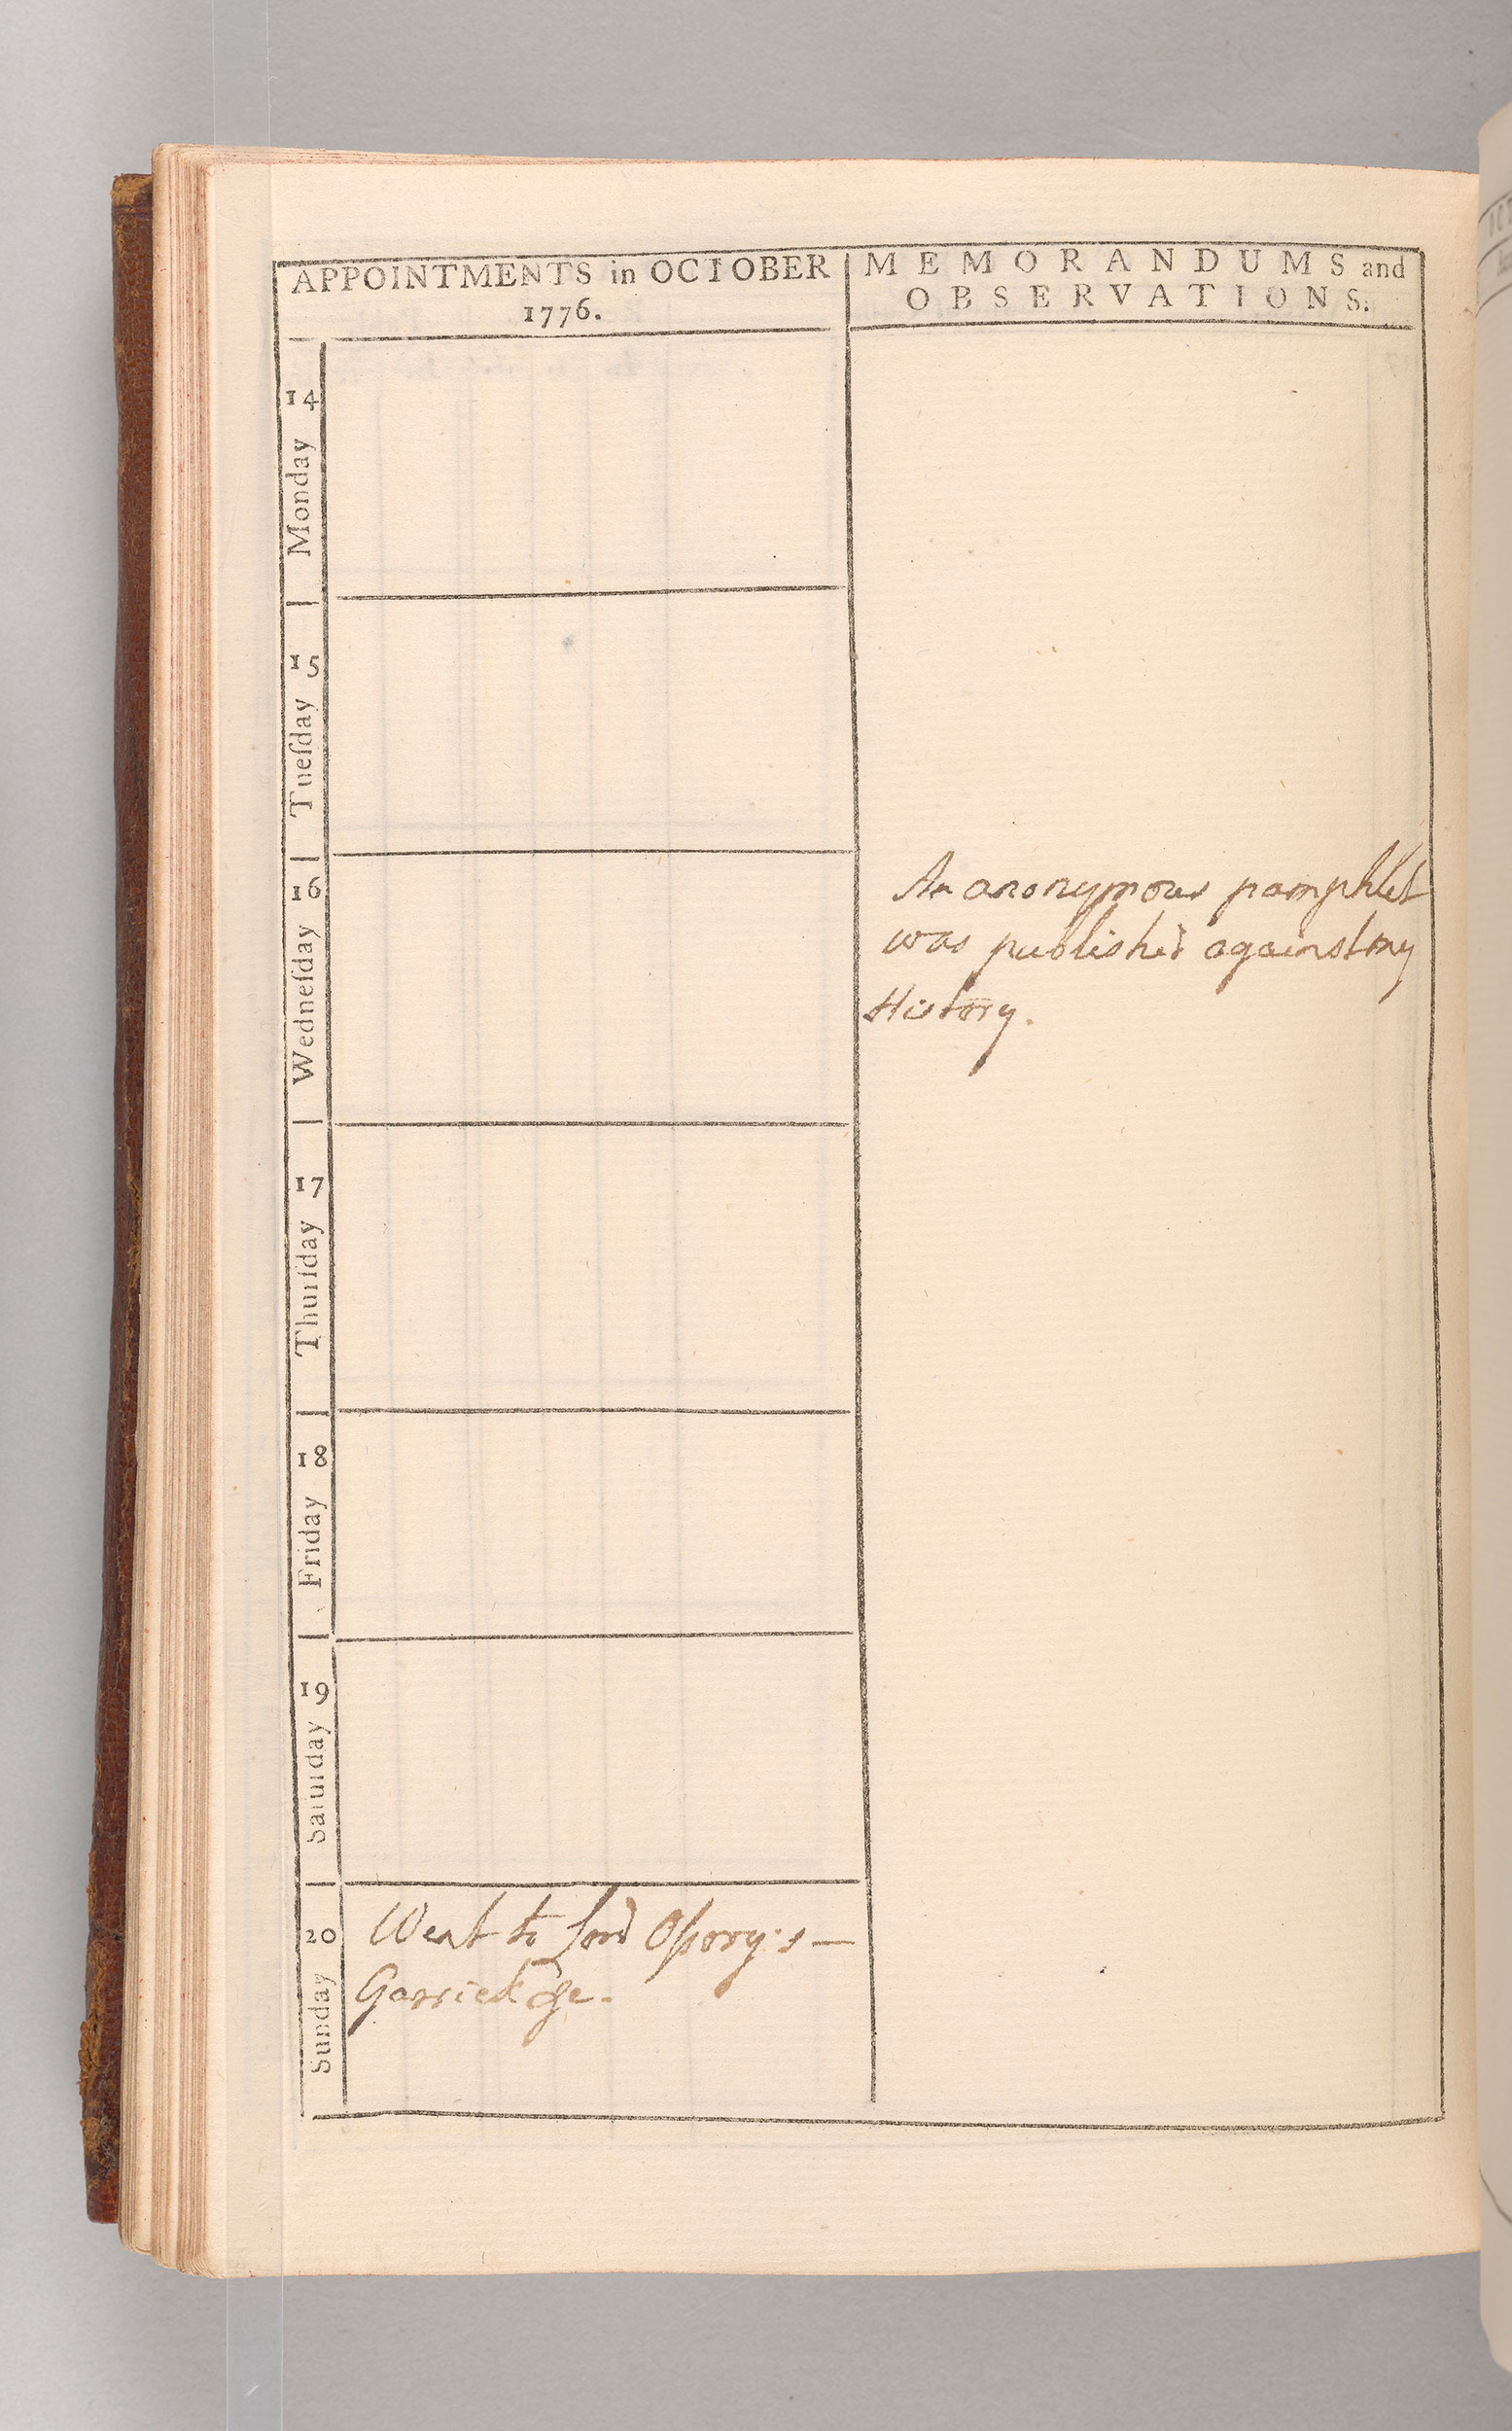 APPOINTMENTS in OCTOBER
1776.
MEMORANDUMS and
OBSERVATIONS.
14
Monday
15
Tueſday
16
Wedneſday
An anonymous pamphlet
was publishd against my
History.
17
Thurſday
18
Friday
19
Saturday
20
Sunday
Went to Lord Oſsory's —
Garrick &c.